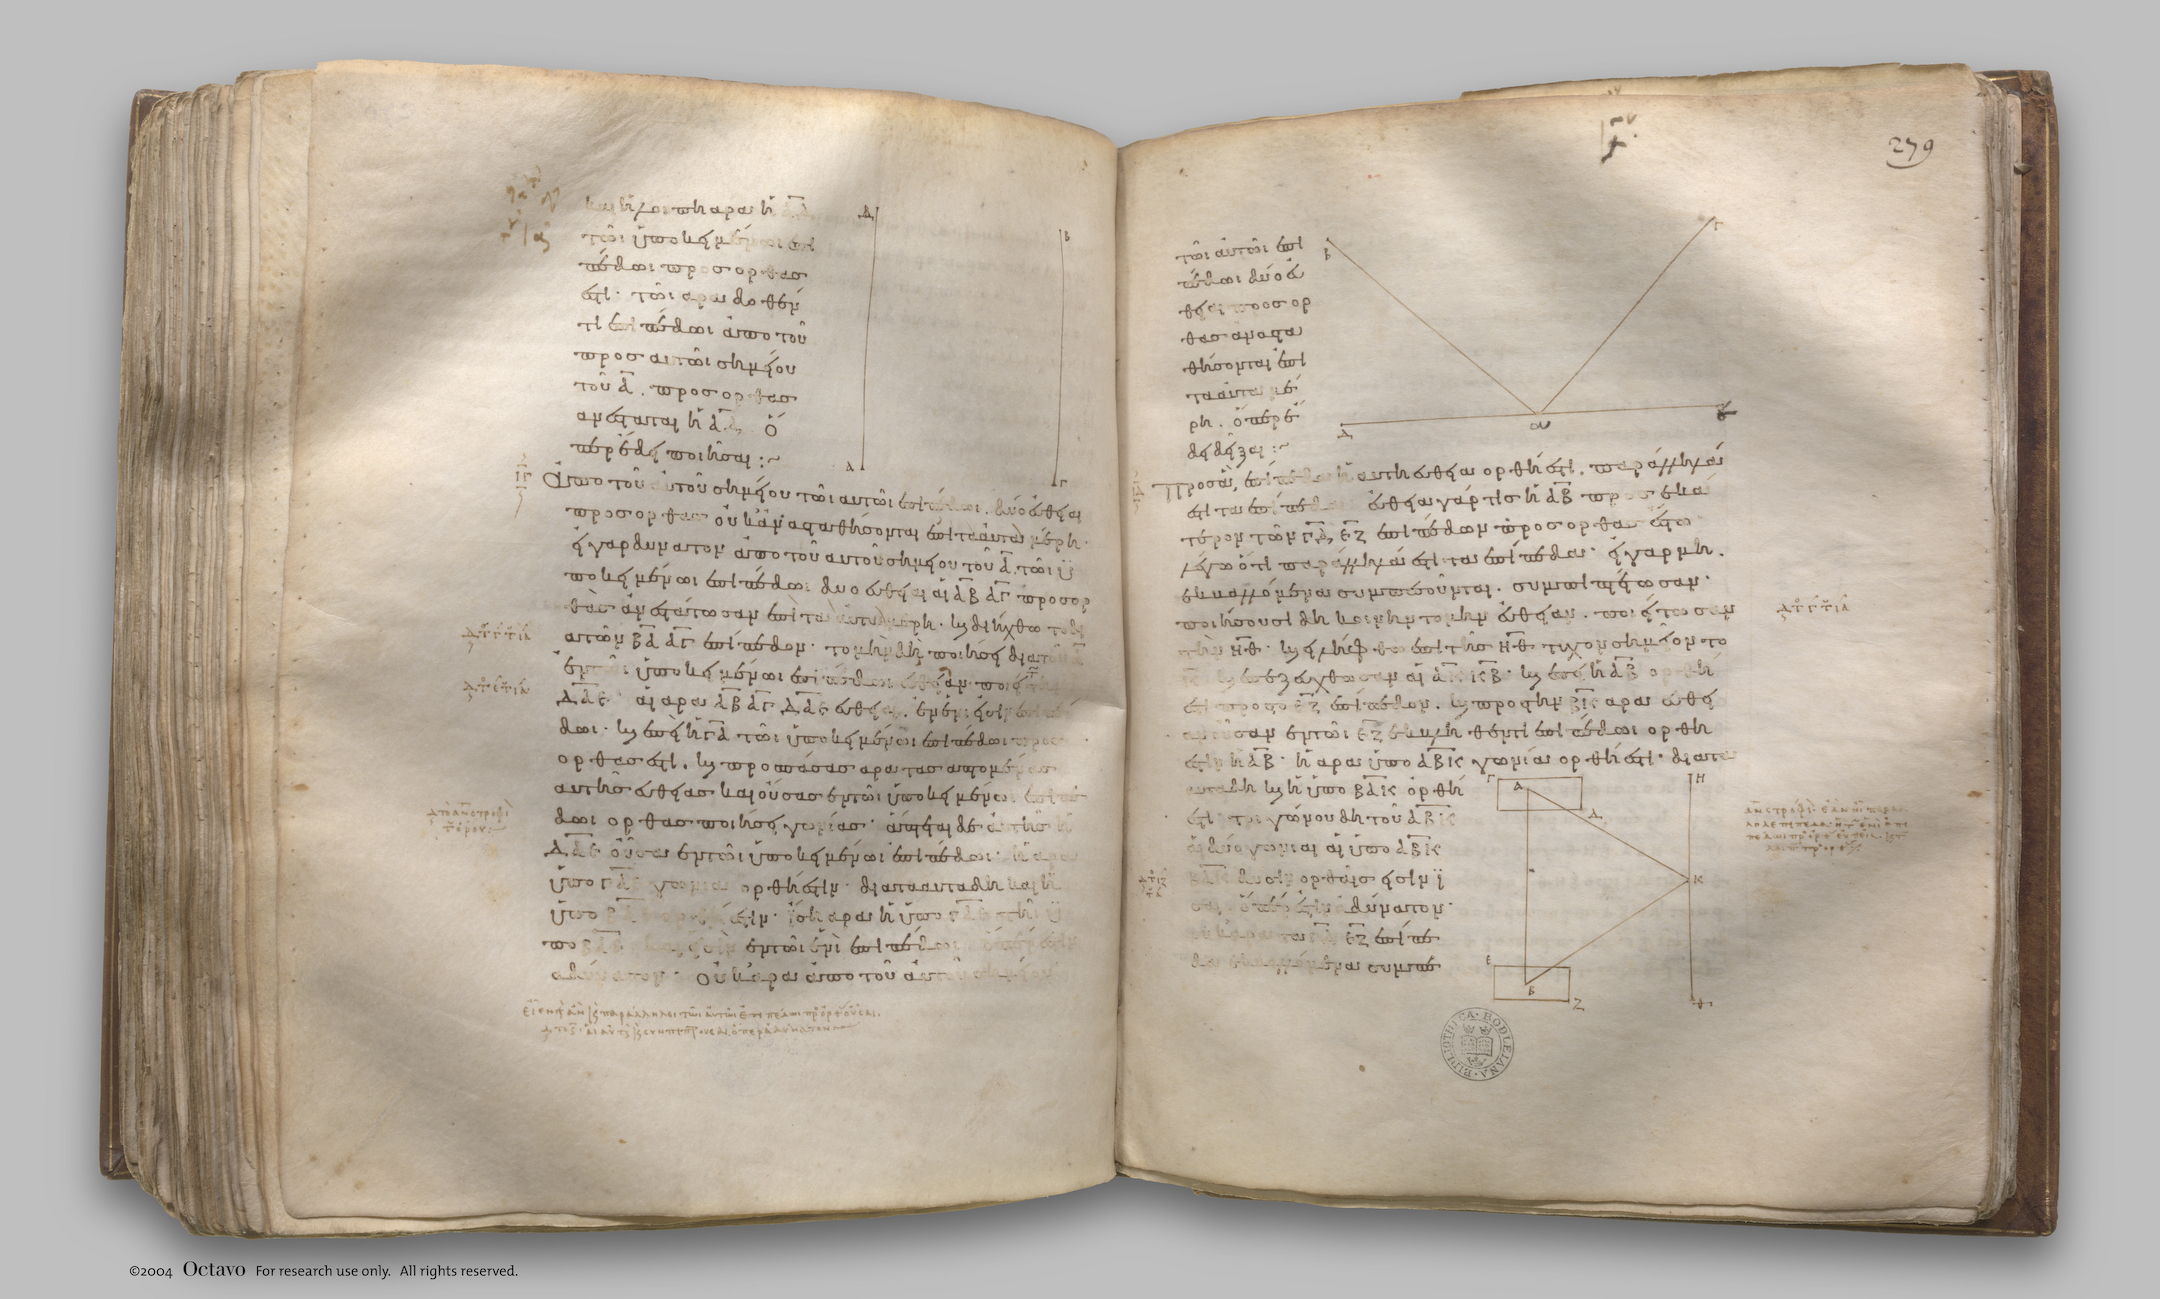 καὶ ἡ λοιπὴ ἄρα ἡ
τῶι ὑποκειμένωι ἐπι
πέδωι πρὸς ὀρθάς
ἐστι· τῶι ἄρα δοθέν
τι ἐπιπέδωι ἀπὸ τοῦ
πρὸς αὐτῶι σημείου
τοῦ Α. πρὸς ὀρθὰς
ἀνέσταται ἡ ΑΔ. ὅ
περ ἔδει ποιῆσαι :~
Δ
Β
Α
Γ
ΙΓ
Ἀπὸ τοῦ αὐτοῦ σημείου τῶι αὐτῶι ἐπιπέδωι. δύο εὐθεῖαι
πρὸς ὀρθὰς οὐκ ἀνασταθήσονται ἐπὶ τὰ αὐτὰ μέρη·
εἰ γὰρ δυνατὸν ἀπὸ τοῦ αὐτοῦ σημείου τοῦ Α. τῶι ὑ
ποκειμένωι ἐπιπέδωι δύο εὐθεῖαι αἱ ΑΒ ΑΓ πρὸς ὀρ
θὰς ἀνεστάτωσαν ἐπὶ τὰ αὐτὰ μέρη. καὶ διήχθω τὸ διὰ
τῶν ΒΑ ΑΓ ἐπίπεδον· τομὴν δὴ ποιήσει διὰ τοῦ Α
ἐν τῶι ὑποκειμένωι ἐπιπέδωι εὐθεῖαν. ποιείτω τὴν
ΔΑΕ· αἱ ἄρα ΑΒ ΑΓ ΔΑΕ εὐθεῖαι. ἐν ἑνί εἰσιν ἐπιπέ
δωι· καὶ ἐπεὶ ἡ ΓΑ τῶι ὑποκειμένωι ἐπιπέδωι πρὸς
ὀρθάς ἐστι. καὶ πρὸς πάσας ἄρα τὰς ἁπτομένας
αὐτῆς εὐθείας καὶ οὔσας ἐν τῶι ὑποκειμένωι ἐπιπέ
δωι ὀρθὰς ποιήσει γωνίας· ἅπτεται δὲ αὐτῆς ἡ
ΔΑΕ οὖσα ἐν τῶι ὑποκειμένωι ἐπιπέδωι· ἡ ἄρα
ὑπὸ ΓΑΕ γωνία ὀρθή ἐστιν· διὰ τὰ αὐτὰ δὴ καὶ ἡ
ὑπὸ ΒΑΕ ὀρθή ἐστιν· ἴση ἄρα ἡ ὑπὸ ΓΑΕ τῆι ὑ
πὸ ΒΑΕ καί εἰσιν ἐν τῶι ἑνὶ ἐπιπέδωι. ὅπερ ἐστὶν
ἀδύνατον· οὐκ ἄρα ἀπὸ τοῦ αὐτοῦ σημείου
279
τῶι αὐτῶι ἐπι
πέδωι δύο εὐ
θεῖαι πρὸς ὀρ
θὰς ἀναστα
θήσονται ἐπὶ
τὰ αὐτὰ μέ
ρη. ὅπερ ἔ
δει δεῖξαι :~
Β
Γ
Δ
Α
Ε
ΙΔ
Πρὸς ἃ ἐπίπεδα ἡ αὐτὴ εὐθεῖα ὀρθή ἐστι. παράλληλά
ἐστι τὰ ἐπίπεδα εὐθεῖα γάρ τις ἡ ΑΒ πρὸς ἑκά
τερον τῶν ΓΔ ΕΖ ἐπιπέδων πρὸς ὀρθὰς ἔστω
λέγω ὅτι παράλληλά ἐστι τὰ ἐπίπεδα· εἰ γὰρ μή.
ἐκβαλλόμενα συμπεσοῦνται. συμπιπτέτωσαν·
ποιήσουσι δὴ κοινὴν τομὴν εὐθεῖαν. ποιείτωσαν
τὴν ΗΘ· καὶ εἰλήφθω ἐπὶ τῆς ΗΘ τυχὸν σημεῖον τὸ
Κ καὶ ἐπεζεύχθωσαν αἱ ΑΚ ΚΒ· καὶ ἐπεὶ ἡ ΑΒ ὀρθή
ἐστι πρὸς τὸ ΕΖ ἐπίπεδον. καὶ πρὸς τὴν ΒΚ ἄρα εὐθεῖ
αν οὖσαν ἐν τῶι ΕΖ ἐκβληθέντι ἐπιπέδωι ὀρθή
ἐστιν ἡ ΑΒ· ἡ ἄρα ὑπὸ ΑΒΚ γωνία ὀρθή ἐστι· διὰ τὰ
αὐτὰ δὴ καὶ ἡ ὑπὸ ΒΑΚ ὀρθή
ἐστι· τριγώνου δὴ τοῦ ΑΒΚ
αἱ δύο γωνίαι αἱ ὑπὸ ΑΒΚ
ΒΑΚ δυσὶν ὀρθαῖς εἰσιν ἴ
σαι ὅπερ ἐστὶν ἀδύνατον·
οὐκ ἄρα τὰ ΓΔ ΕΖ ἐπίπε
δα ἐκβαλλόμενα συμπε
Γ
Α
Δ
Η
Κ
Ε
Β
Ζ
Θ
BIBLIOTHECA·BODLEIANA·
©2004 Octavo For research use only. All rights reserved.